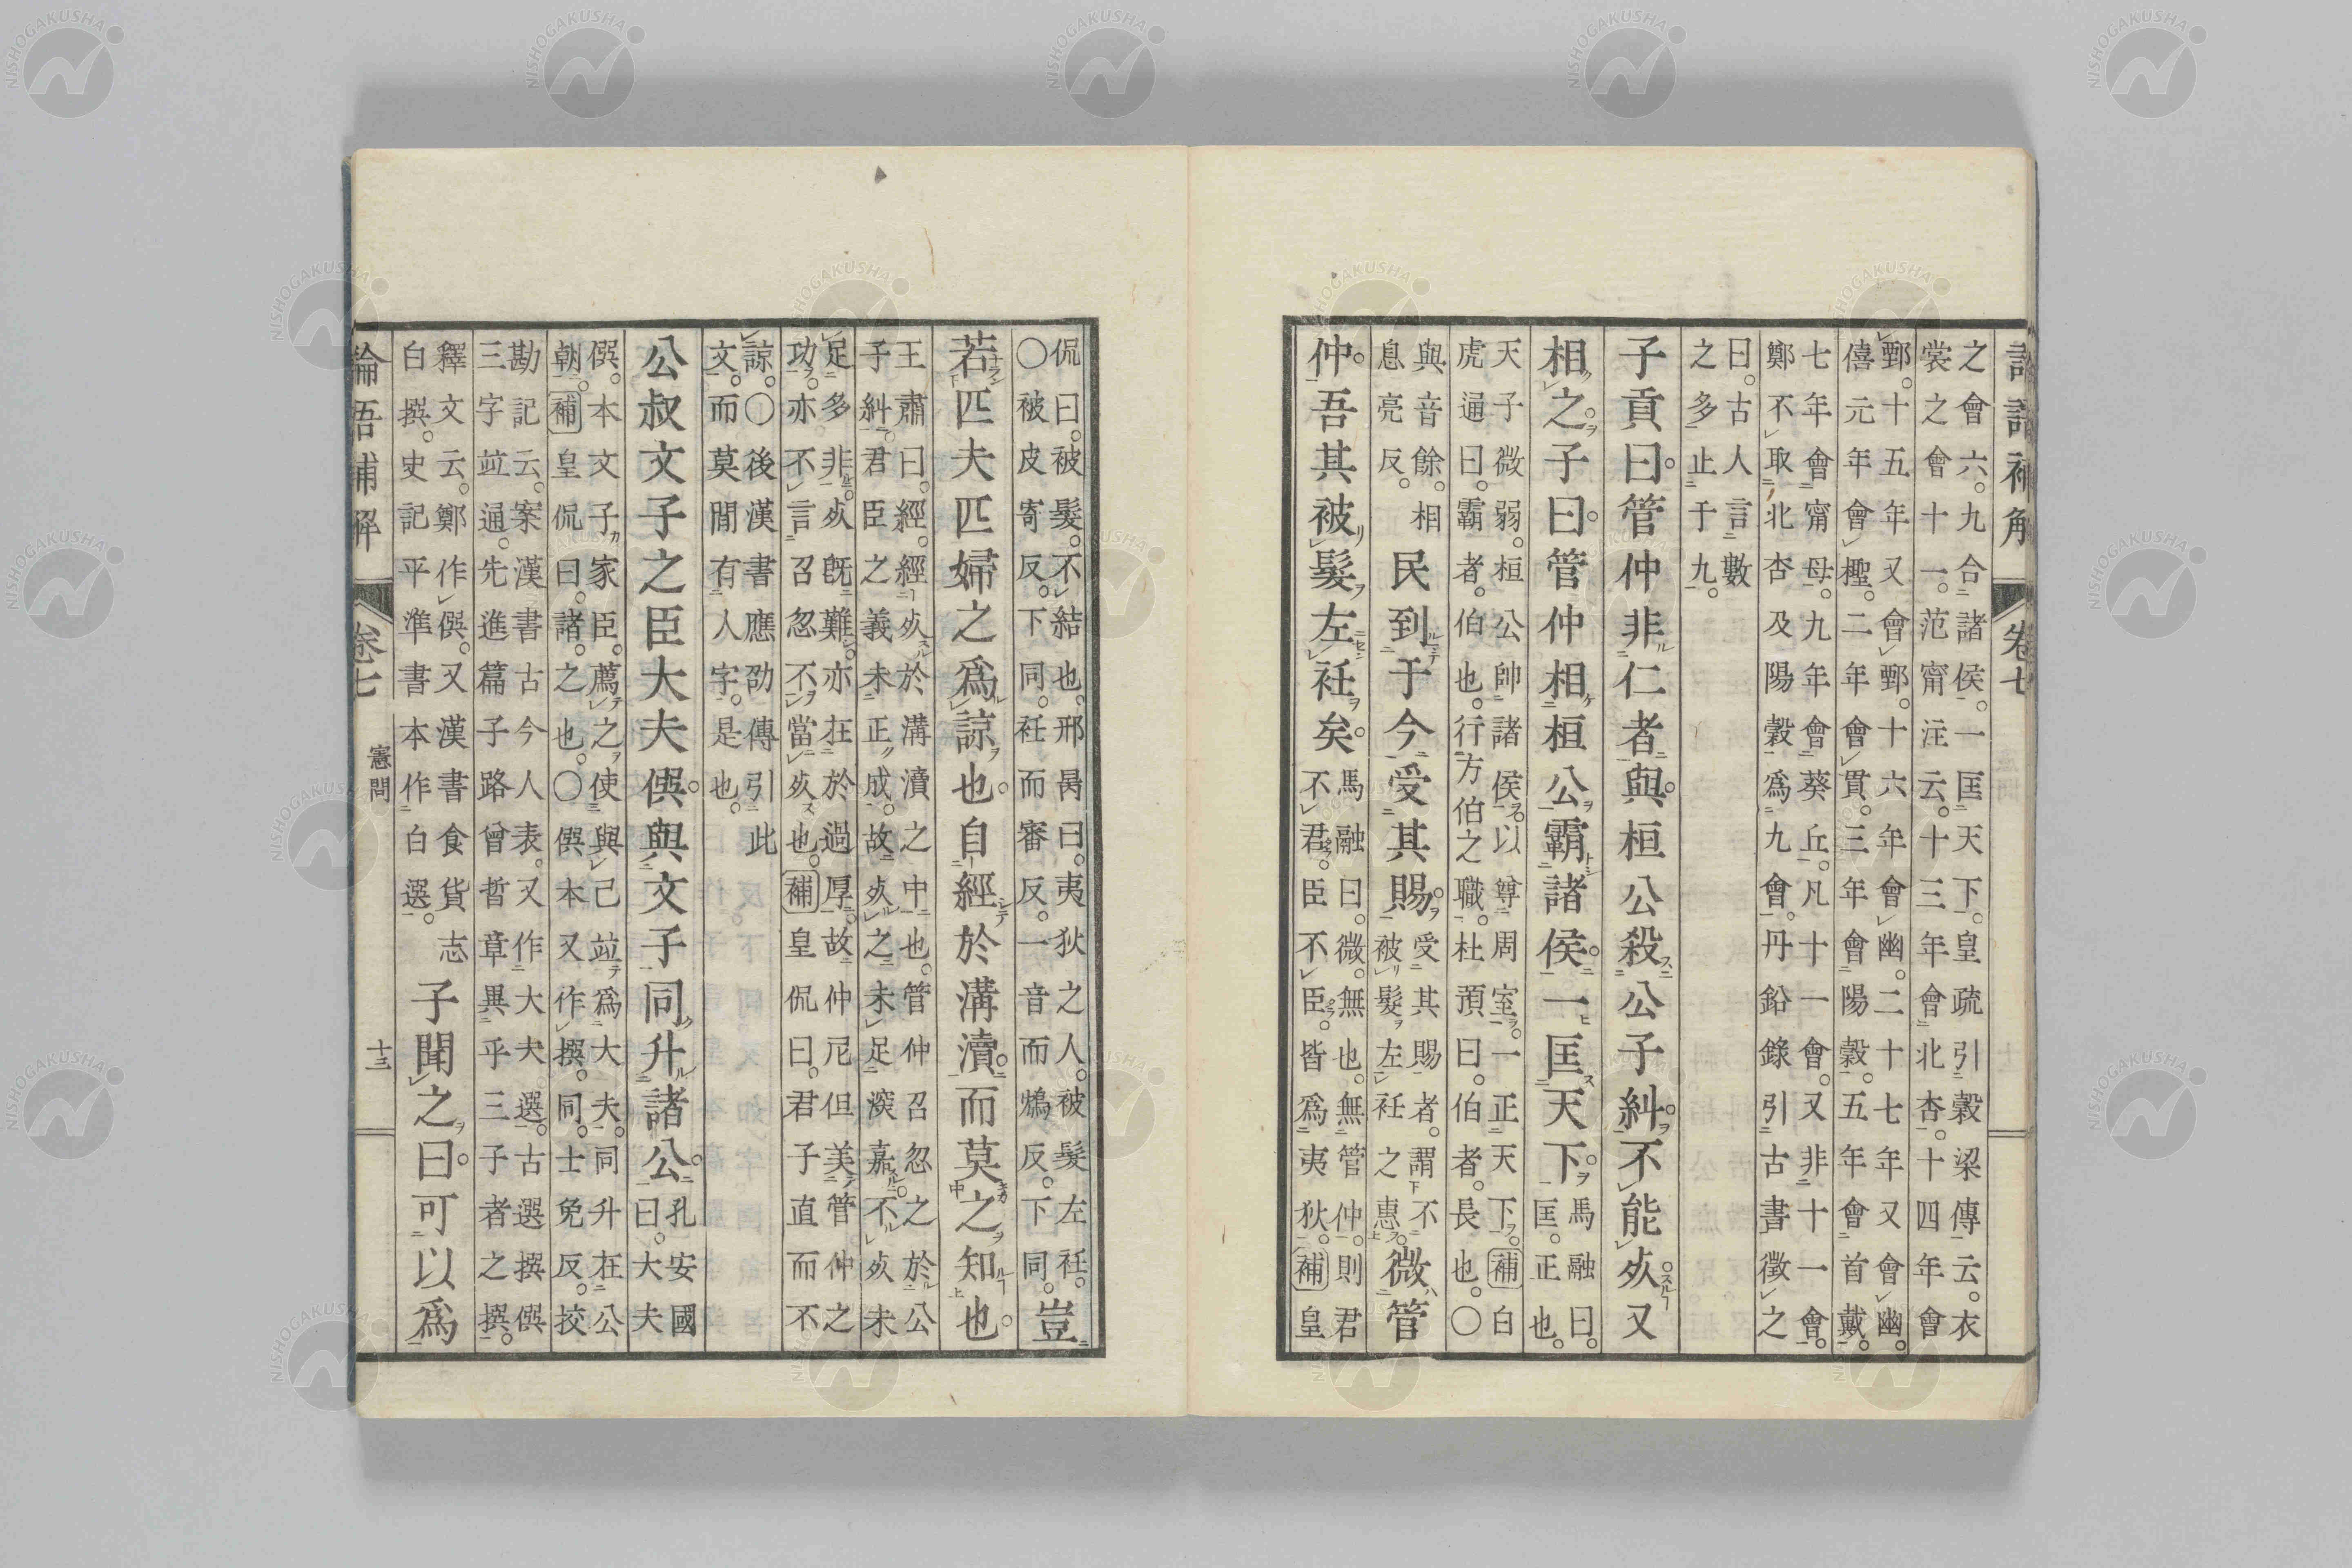 卷七
之會六。九合諸侯。一匡天下。皇疏引穀梁傳云。衣
裳之會十一。范甯注云。十三年會北杏。十四年會
鄄。十五年又會鄄。十六年會幽。二十七年又會幽。
僖元年會檉。二年會貫。三年會陽穀。五年會首戴。
七年會甯母。九年會葵丘。凡十一會。又非十一會。
鄭不取北杏及陽穀爲九會。丹鉛錄引古書徵之
曰。古人言數
之多止于九。
子貢曰。管仲非仁者與。桓公殺公子糾。不能死。又
相之。子曰。管仲相桓公。霸諸侯。一匡天下。
馬融曰。
匡。正也。
天子微弱。桓公帥諸侯。以尊周室。一正天下。補白
虎通曰。霸者。伯也。行方伯之職。杜預曰。伯者。長也。〇
與音餘。相
息亮反。
民到于今受其賜。
受其賜者。謂不
被髮左衽之惠。
微管
仲。吾其被髮左衽矣。
馬融曰。微。無也。無管仲。則君
不君。臣不臣。皆爲夷狄。補皇
侃曰。被髮。不結也。邢昺曰。夷狄之人。被髮左衽。
〇被皮寄反。下同。衽而審反。一音而鴆反。下同。
豈
若匹夫匹婦之爲諒也。自經於溝瀆。而莫之知也。
王肅曰。經。經死於溝瀆之中也。管仲召忽之於公
子糾。君臣之義未正成。故死之未足深嘉。不死未
足多非。死既難。亦在於過厚。故仲尼但美管仲之
功。亦不言召忽不當死也。補皇侃曰。君子直而不
諒。〇後漢書應劭傳引此
文。而莫閒有人字。是也。
公叔文子之臣大夫僎。與文子同升諸公。
孔安國
曰。大夫
僎。本文子家臣。薦之使與己竝爲大夫。同升在公
朝。補皇侃曰。諸。之也。〇僎本又作撰。同。士免反。挍
勘記云。案漢書古今人表。又作大夫選。古選撰僎
三字竝通。先進篇子路曾晳章異乎三子者之撰。
釋文云。鄭作僎。又漢書食貨志
白撰。史記平準書本作白選。
子聞之曰。可以爲
論語補解
卷七
憲問
十三